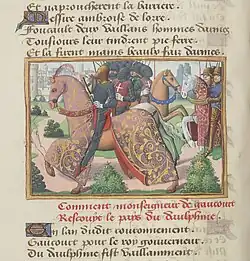 Et napoucherent la barriere.
Messire ambroise de lore.
Foucault deux vaillans hommes darmes
Tousiours leur tindrent pie ferre
Et la firent mains beauly fair darmes
Comment monseigneur de gaucourt
Rescouyt le pays du daulphine.
En lan dudit couronnement.
Gaucourt pour le roy gouuerneur
Du daulphine fist vaillamment.